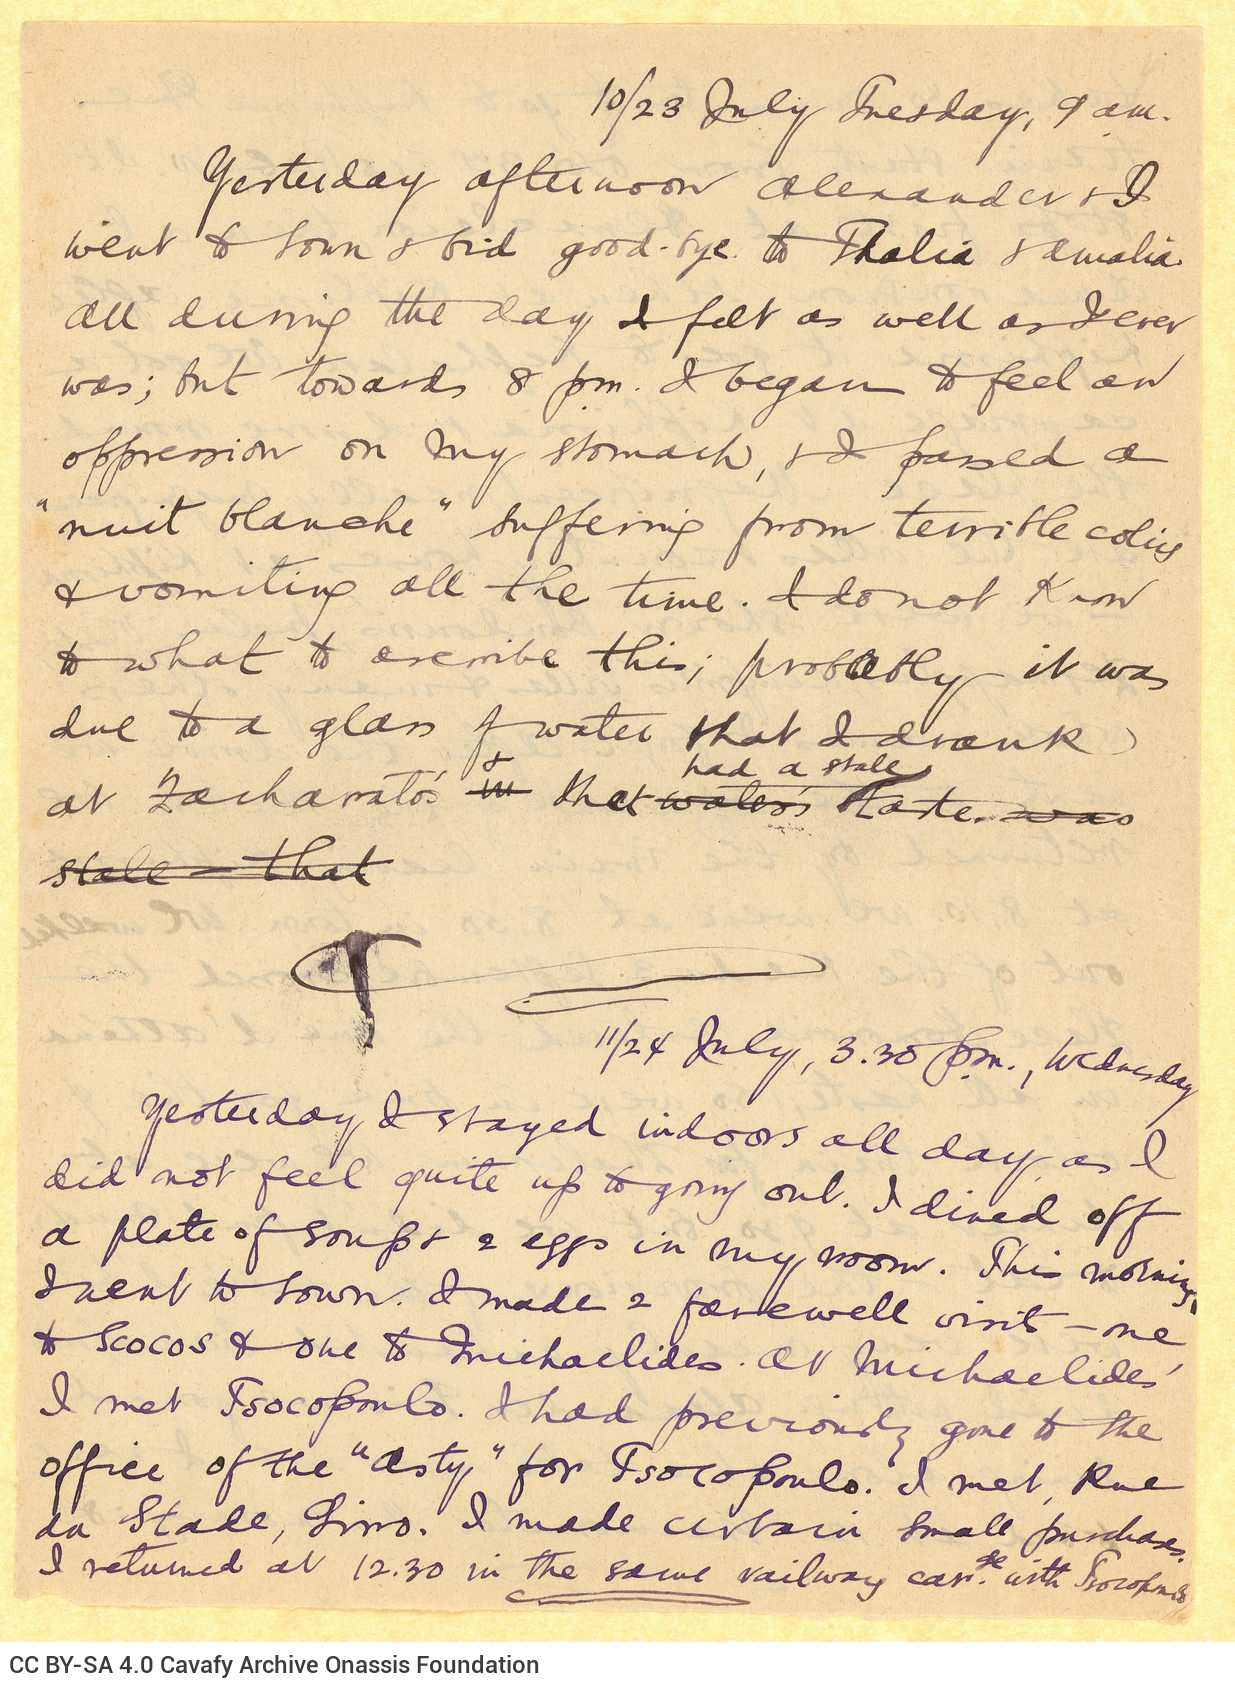 10/23 July Tuesday, 9 am.
Yesterday afternoon Alexander & I
went to town & bid good-bye to Thalia & Amalia.
All during the day I felt as well as I ever
was; but towards 8 pm. I began to feel an
oppression on my stomach, & I passed a
"nuit blanche" suffering from terrible colics
& vomiting all the time. I do not know
to what to ascribe this; probably it was
due to a glass of water that I drank
at Zacharato's in & that water's had a stale taste. was
stale - that
11/24 July, 3.30 pm., Wednesday
Yesterday I stayed indoors all day as I
did not feel quite up to going out. I dined off
a plate of soup & 2 eggs in my room. This morning
I went to town. I made 2 farewell visits - one
to Scocos & one to Michaelides. At Michaelides'
I met Tsocopoulo. I had previously gone to the
office of the "Asty" for Tsocopoulo. I met, Rue
du Stade, Lino. I made certain small purchases.
I returned at 12.30 in the same railway carr.ge with Tsocopoulo
CC BY-SA 4.0 Cavafy Archive Onassis Foundation